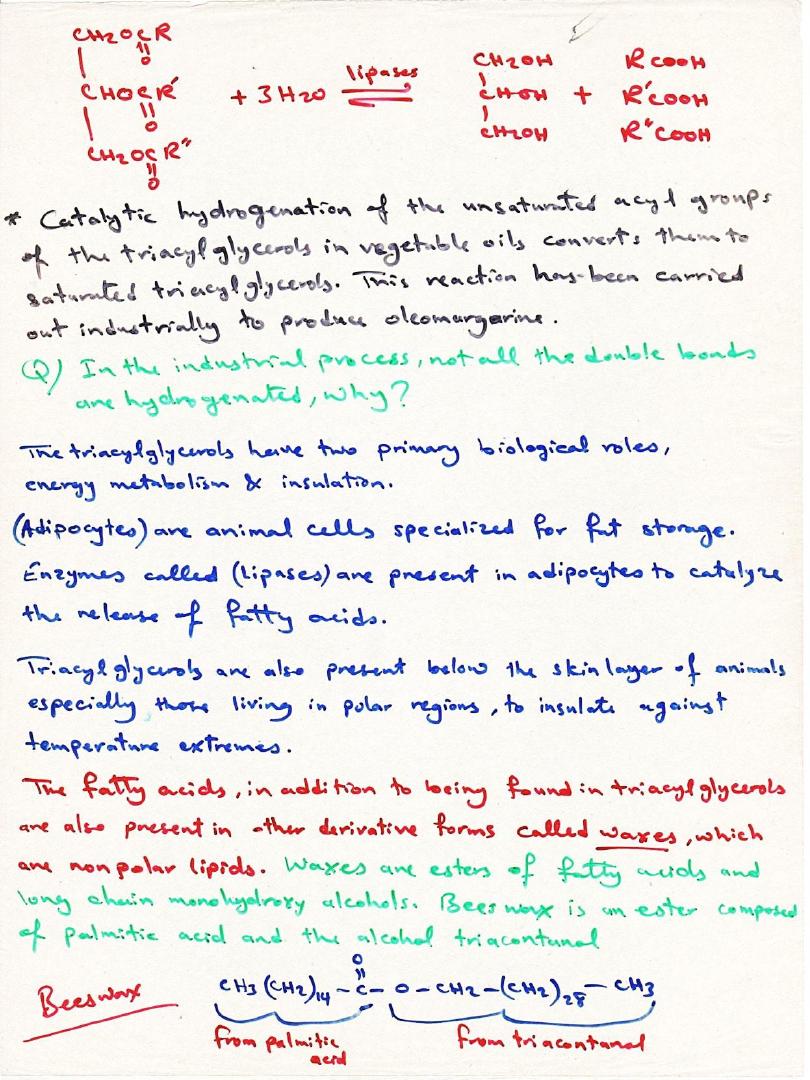 CH2OCR
O
CHOCR'
O
CH2OCR"
O
+ 3H2O
lipases
CH2OH
CHOH
CH2OH
+
RCOOH
R'COOH
R"COOH
* Catalytic hydrogenation of the unsaturated acyl groups
of the triacylglycerols in vegetable oils converts them to
saturated triacylglycerols. This reaction has-been carried
out industrially to produce oleomargarine.
Q) In the industrial process, not all the double bonds
are hydrogenated, why?
The triacylglycerols have two primary biological roles,
energy metabolism & insulation.
(Adipocytes) are animal cells specialized for fat storage.
Enzymes called (Lipases) are present in adipocytes to catalyze
the release of fatty acids.
Triacylglycerols are also present below the skin layer of animals
especially those living in polar regions, to insulate against
temperature extremes.
The fatty acids, in addition to being found in triacylglycerols
are also present in other derivative forms called waxes, which
are nonpolar lipids. Waxes are esters of fatty acids and
long chain monohydroxy alcohols. Bees wax is an ester composed
of palmitic acid and the alcohol triacontanol
Beeswax
O
CH3(CH2)14-C-O-CH2-(CH2)28-CH3
from palmitic acid
from triacontanol